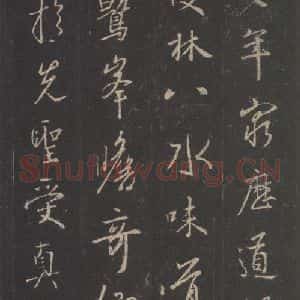 年窮歷道
林八水味道
鷲峯瞻奇
於先聖受真
Shufawang.CN